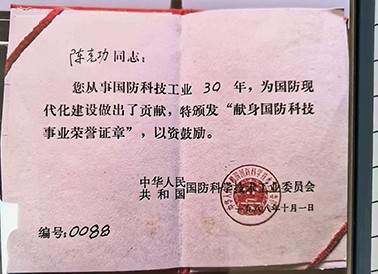 陈克功同志：
您从事国防科技工业30年，为国防现
代化建设做出了贡献，特颁发“献身国防科技
事业荣誉证章”，以资鼓励。
中华人民
共和国国防科学技术工业委员会
一九八八年十月一日
编号：0088